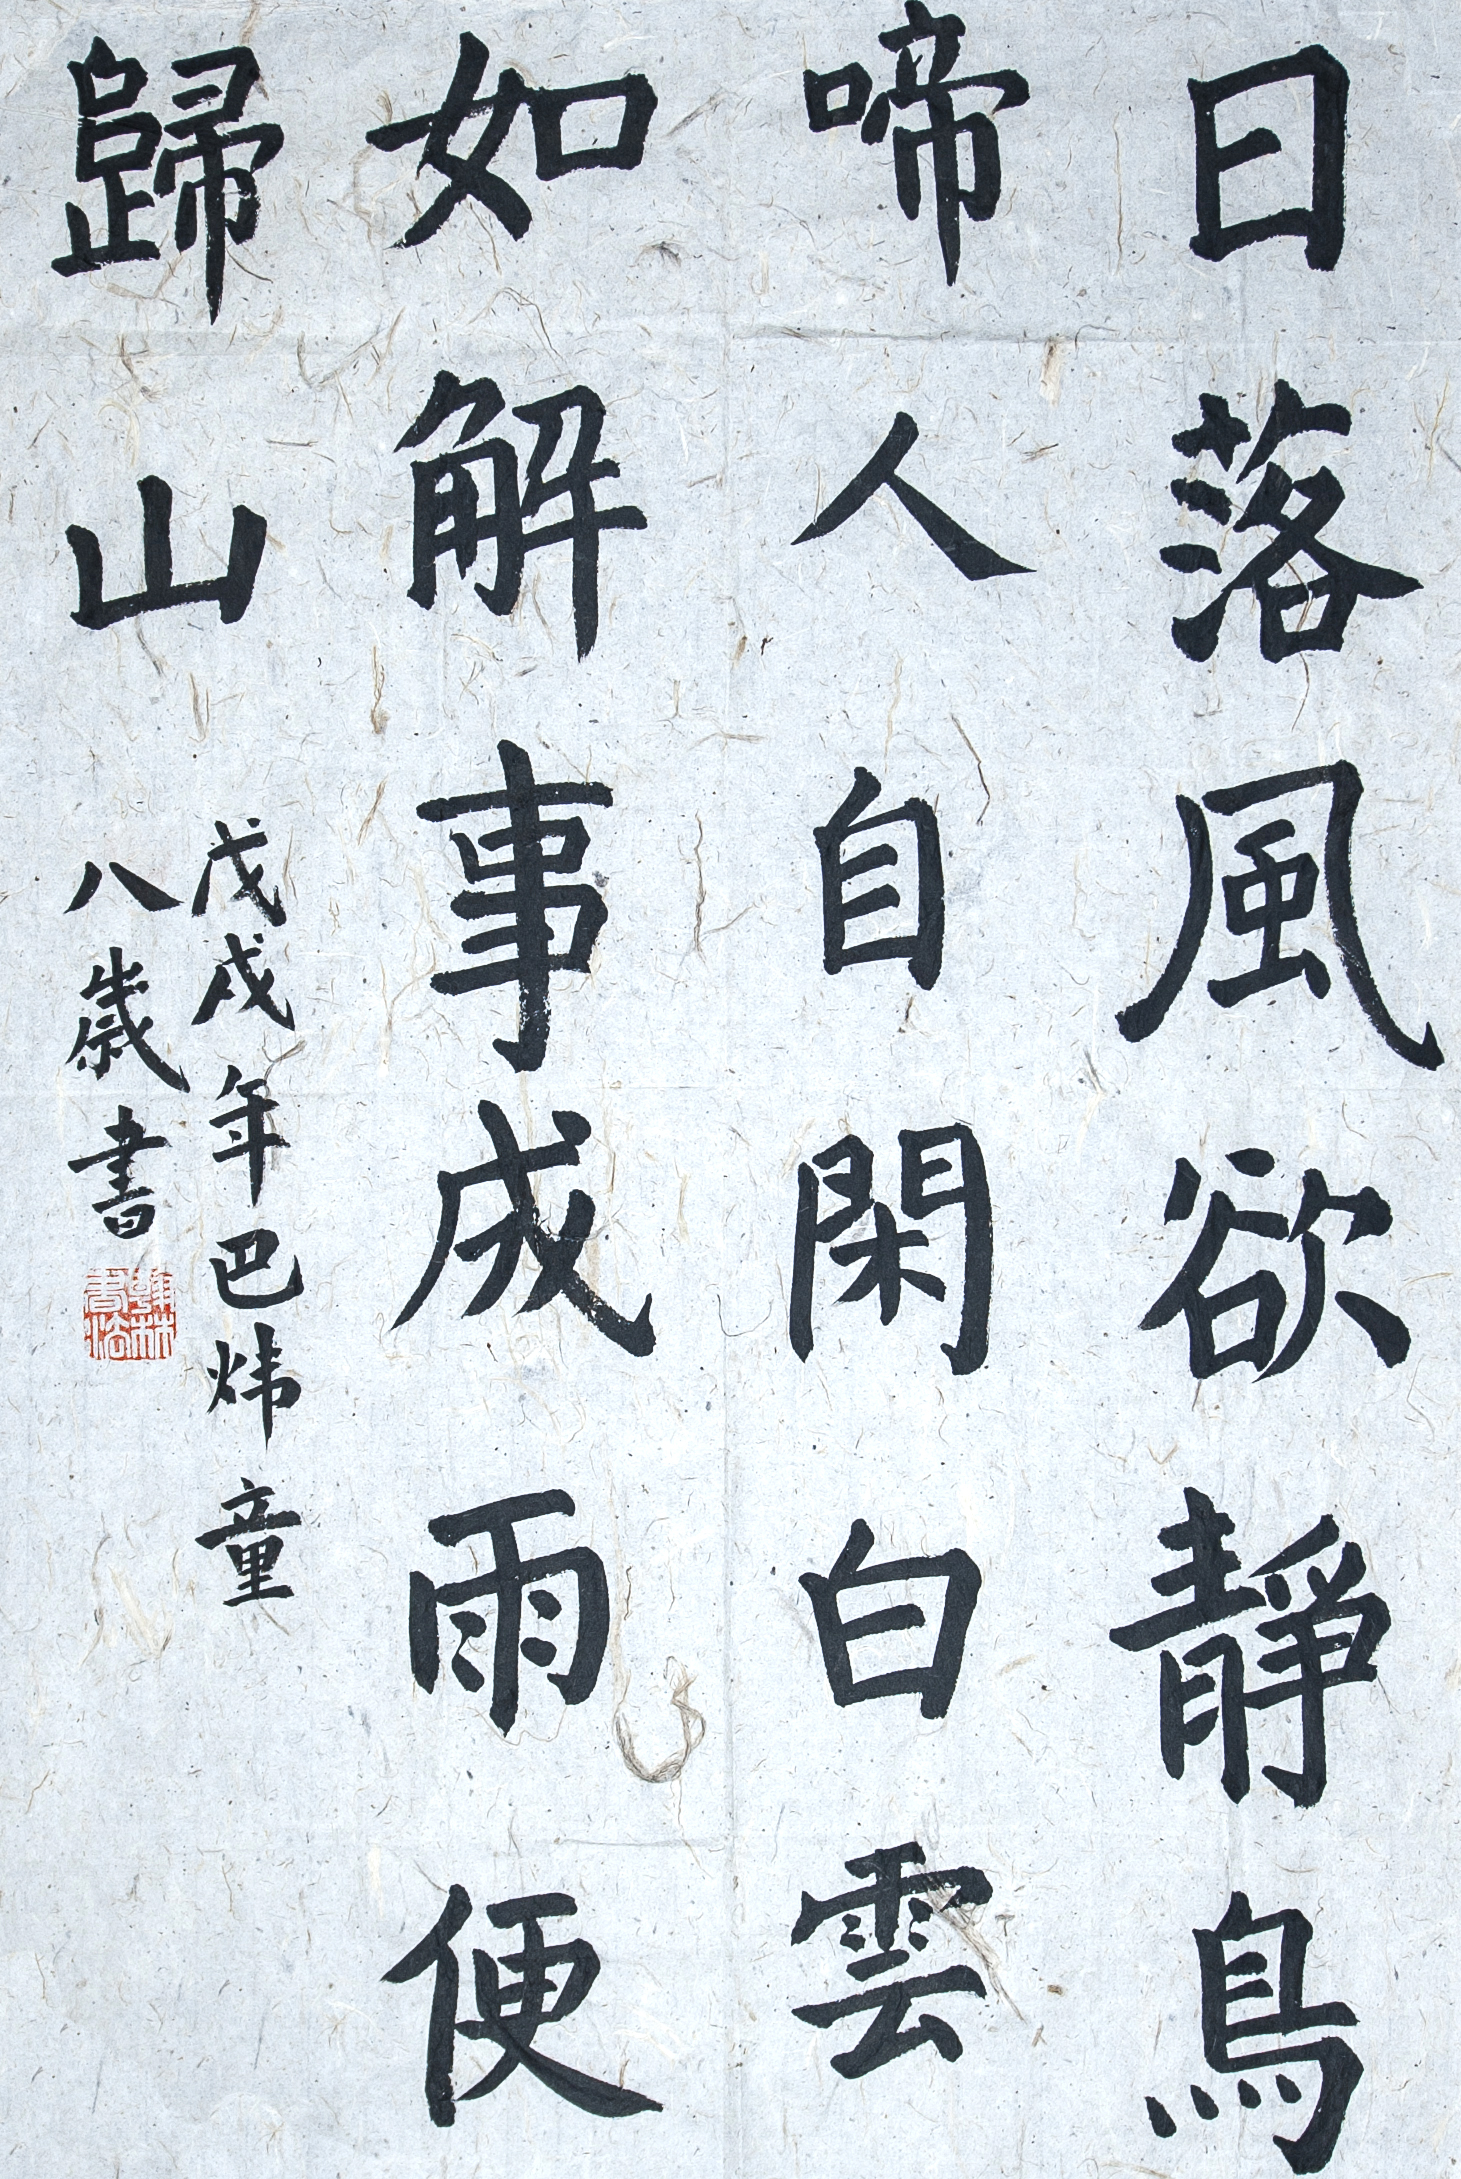 日落風欲靜鳥
啼人自閑白雲
如解事成雨便
歸山
戊戌年巴炜童
八歲書